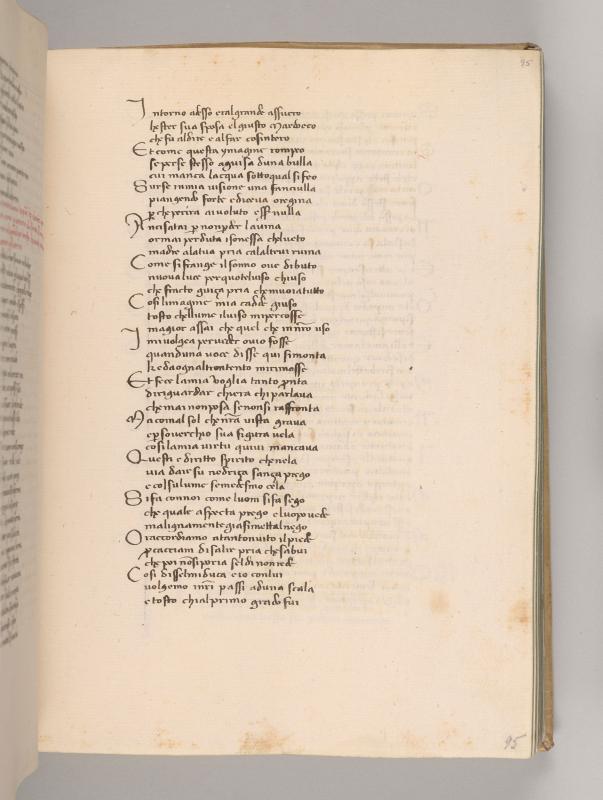 95
Intorno adesso era lgrande assuero
hester sua sposa elgiusto mardoceo
che fu aldire e alfar cosintero
Et come questa ymagine rompeo
se perse stesso aguisa duna bulla
cui manca lacqua sotto qual si feo
Surse inmia visione una fanciulla
piangendo forte e diceva o regina
per che perira ai voluto esser nulla
Ancisa tai per nonperder lavina
or mai perduta i sonessa cheluto
madre alatua pria calaltrui ruina
Come si frange il sonno ove dibuto
nuova luce per quote lviso chiuso
che fracto guiça pria che muoia tutto
Cosi limagine mia cadde giuso
tosto chellume iluiso mi percosse
magior assai che quel che in nostro uso
Imi volgea per veder ovio fosse
quanduna voce disse qui si monta
he da ogna ltro ntento mi rimosse
Et fece lamia voglia tanto pronta
di riguardar chi era chi parlava
che mai non posa se non si raffronta
Ma comal sol che nostra vista grava
e per soverchio sua figura vela
cosi lamia virtu quivi mancava
Questi e diritto spirito che nela
via dair su ne driça sança prego
e col sulume se medesmo cela
Si fa con noi come luom si fa sego
che quale aspecta prego e luopo vede
malignamente gia si mettal nego
Ora cordiamo atanto nvito il piede
procacciam di salir pria che sabui
che poi non si poria sel di non riede
Cosi disse lmi duca e io con lui
volgemo nostri passi aduna scala
e tosto chi al primo grado fui
95